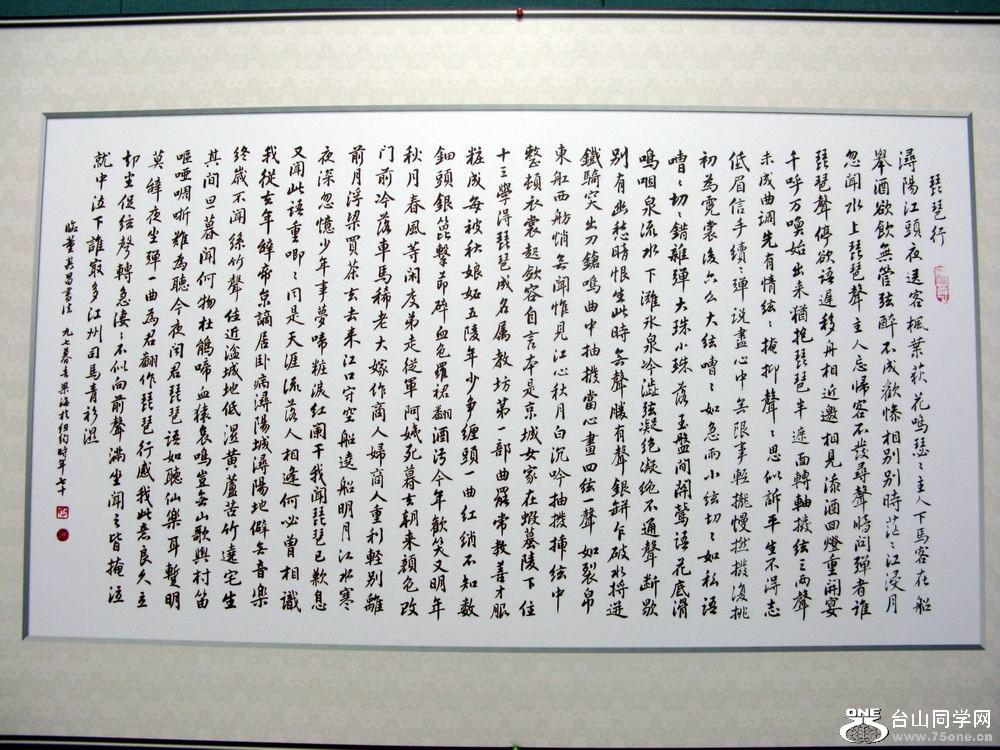 琵琶行
潯陽江頭夜送客楓葉荻花鳴瑟〻主人下馬客在船
舉酒欲飲無管弦醉不成歡慘相別別時茫〻江浸月
忽聞水上琵琶聲主人忘歸客不發尋聲暗問彈者誰
琵琶聲停欲語遲移舟相近邀相見添酒回燈重開宴
千呼万喚始出来猶抱琵琶半遮面轉軸撥弦三兩聲
未成曲調先有情弦〻掩抑聲〻思似訴平生不得志
低眉信手續〻彈說盡心中無限事輕攏慢撚撥復挑
初為霓裳後六么大弦嘈〻如急雨小弦切〻如私語
嘈〻切〻錯雜彈大珠小珠落玉盤間關鶯語花底滑
鳴咽泉流水下灘氷泉冷澁弦凝絕凝絕不通聲斷歇
別有幽愁暗恨生此時無聲勝有聲銀缾乍破水將迸
鐵騎突出刀鎗鳴曲中抽撥當心畫四弦一聲如裂帛
東船西舫悄無聞惟見江心秋月白沉吟抽撥插弦中
整頓衣裳起飲容自言本是京城女家在蝦蟇陵下住
十三學得琵琶成名属教坊第一部曲罷常教善才服
粧成每被秋娘妬五陵年少爭纏頭一曲紅綃不知數
鈿頭銀篦擊節碎血色羅裙翻酒污今年歡笑又明年
秋月春風等閑度弟走從軍阿姨死暮去朝来顏色改
門前冷落車馬稀老大嫁作商人婦商人重利輕別離
前月浮梁買茶去去来江口守空船遶船明月江水寒
夜深忽憶少年事夢啼粧淚紅闌干我聞琵琶已歎息
又聞此語重唧〻同是天涯流落人相逢何必曾相識
我從去年辭帝京謫居卧病潯陽城潯陽地僻無音樂
終歲不聞絲竹聲住近湓城地低濕黃蘆苦竹遶宅生
其間旦暮聞何物杜鵑啼血猿哀鳴豈無山歌與村笛
嘔啞啁哳難為聽今夜聞君琵琶語如聽仙樂耳暫明
莫辭夜坐彈一曲為君翻作琵琶行感我此言良久立
却坐促弦弦轉急凄〻不似向前聲滿坐聞之皆掩泣
就中泣下誰最多江州司馬青衫濕
臨董其昌書法 九七暮春 海於紐約時年七十
ONE 台山同学网
www.75one.cn